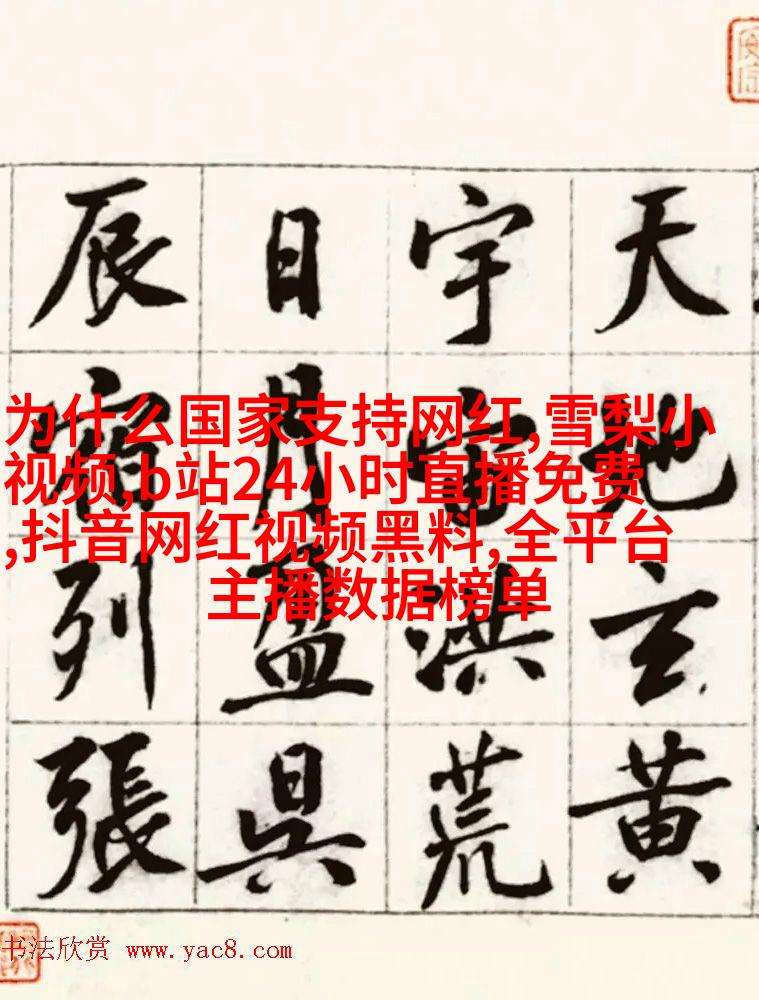 天地玄黄
宇宙洪荒
日月盈昃
辰宿列張
为什么国家支持网红,雪梨小
视频,b站24小时直播免费
,抖音网红视频黑料,全平台
主播数据榜单
书法欣赏 www.yac8.com